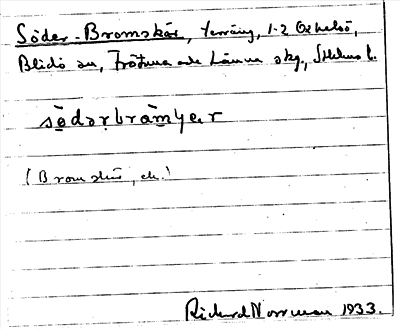 Söder-Bromskär, terräng, 1-2 Oxhalsö,
Blidö sn, Frötuna och Länna skg., Sthlms l.
södərbrɑmʃær
(Bromskär, ek.)
Rickard Norrman 1933.